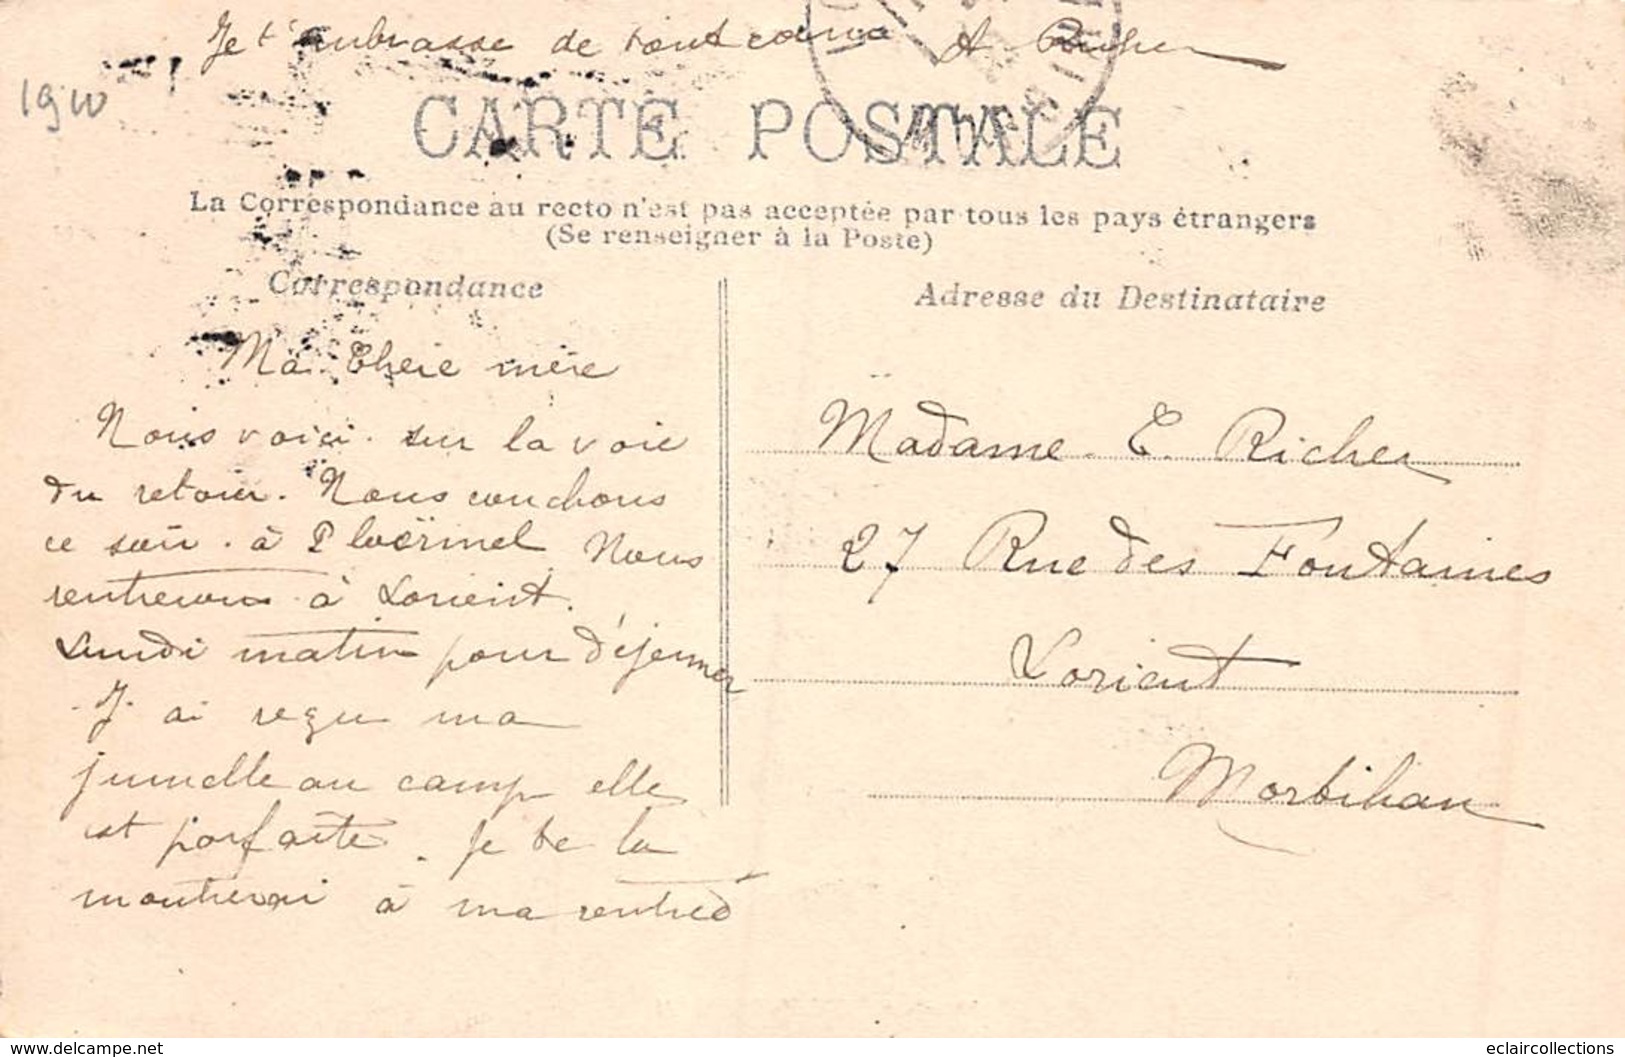 Je t'embrasse de tout cœur A Richer
1910
CARTE POSTALE
La Correspondance au recto n'est pas acceptée par tous les pays étrangers
(Se renseigner à la Poste)
Correspondance
Adresse du Destinataire
Ma Chère mère
Nous voici sur la voie
du retour. Nous couchons
ce soir à Ploërmel Nous
rentrerons à Lorient.
Lundi matin pour déjeuner
J'ai reçu ma
jumelle au camp elle
est parfaite. Je te la
montrerai à ma rentrée
Madame E. Richer
27 Rue des Fontaines
Lorient
Morbihan
www.delcampe.net
eclaircollections